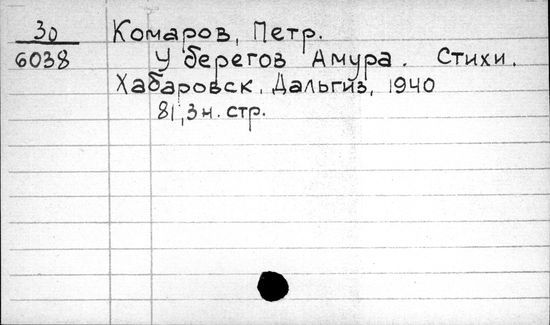 30 Комаров, Петр.
6038 У берегов Амура. Стихи.
Хабаровск, Дальгиз, 1940
81, 3 н. стр.